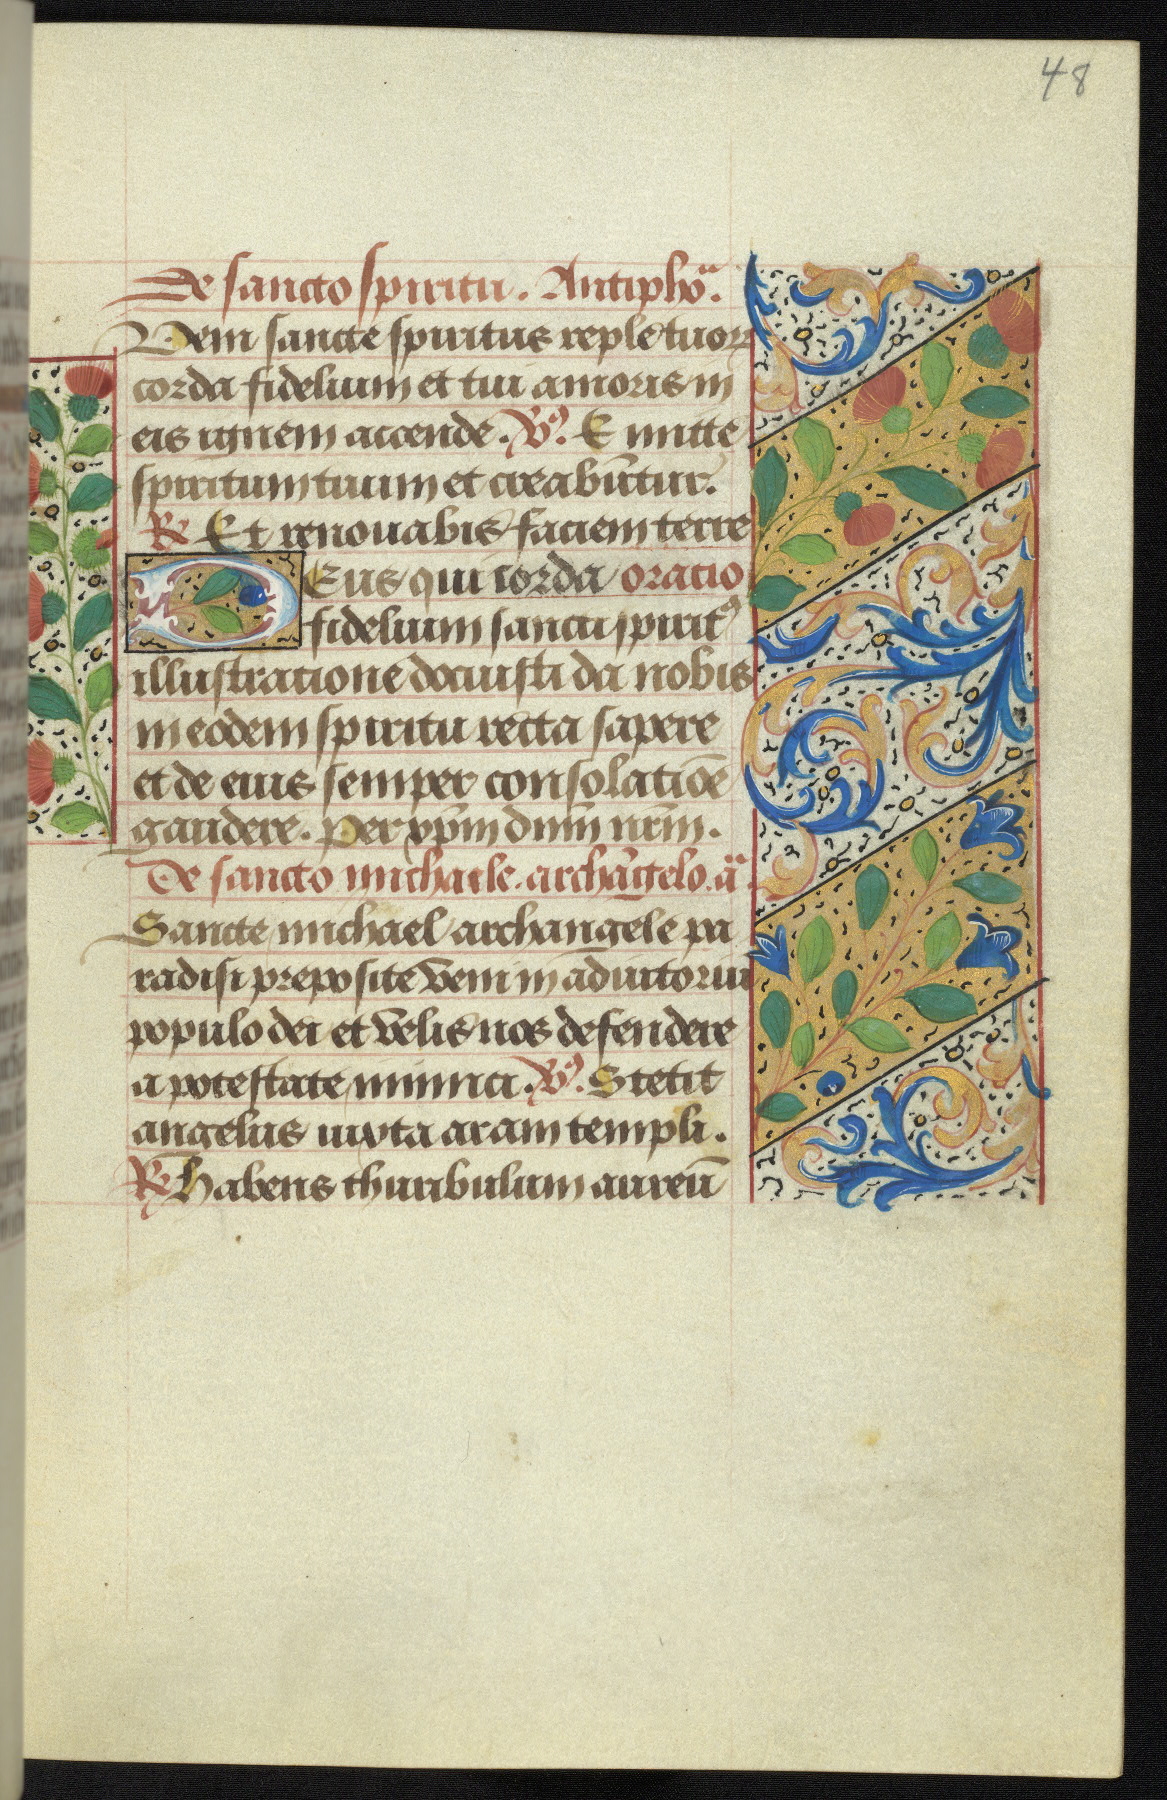 48
De sancto spiritu. Antipho᷒a.
Veni sancte spiritus reple tuoꝝ
corda fidelium et tui amoris in
eis ignem accende. ℣. Emitte
spiritum tuum et creabūtur.
℟ Et renouabis faciem terre
DEus qui corda oratio
fidelium sancti spiritꝰ
illustratione docuisti da nobis
in eodem spiritu recta sapere
et de eius semper consolatiōe
gaudere. Per xp̄m dn̄m nr̄m.
De sancto michaele. archāgelo. ā.
Sancte michael archangele pa
radisi preposite veni in adiutoriū
populo dei et velis nos defendere
a potestate inimici. ℣. Stetit
angelus iuxta aram templi.
℟ Habens thuribulum aureū